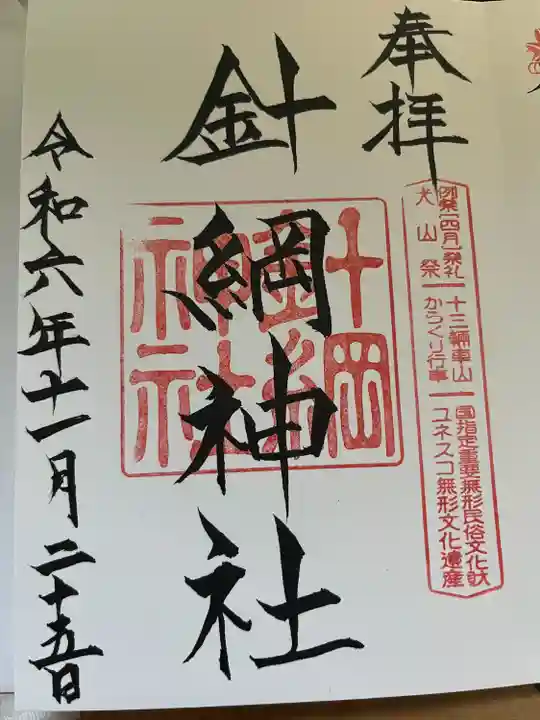 奉拝
例祭[四月]祭礼
犬山祭
十三輌車山
からくり行事
国指定重要無形民俗文化財
ユネスコ無形文化遺産
針綱神社
針綱神社
令和六年十一月二十五日